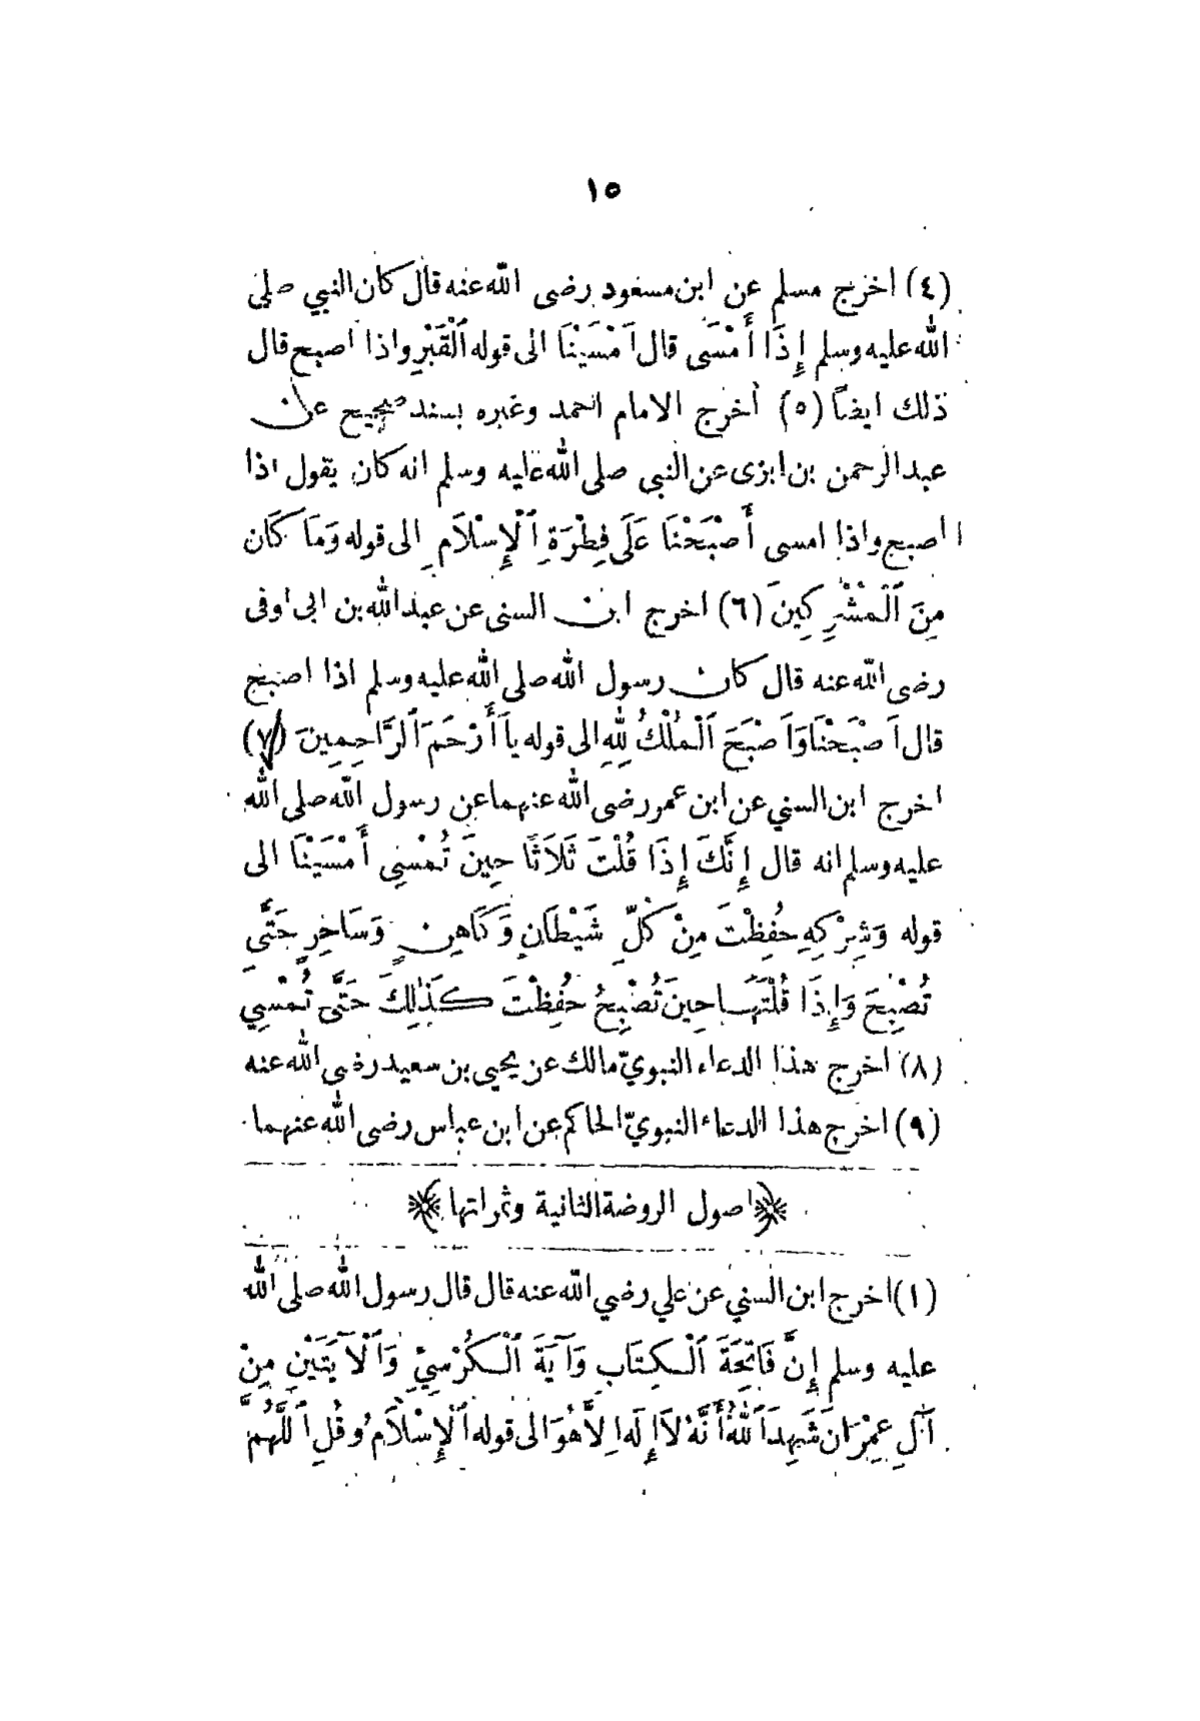 ١٥
(٤) اخرج مسلم عن ابن مسعود رضى الله عنه قال كان النبي صلى
الله عليه وسلم إِذَا أَمْسَى قال اَمْسَيْنَا الى قوله اَلْقَبْرِ واذا اصبح قال
ذلك ايضاً (٥) اخرج الامام احمد وغيره بسند صحيح عن
عبد الرحمن بن ابزى عن النبى صلى الله عليه وسلم انه كان يقول اذا
اصبح واذا امسى أَصْبَحْنَا عَلَى فِطْرَةِ اَلْإِسْلَامِ الى قوله وَمَا كَانَ
مِنَ اَلْمُشْرِكِينَ (٦) اخرج ابن السنى عن عبد الله بن ابى اوفى
رضى الله عنه قال كان رسول الله صلى الله عليه وسلم اذا اصبح
قال اَصْبَحْنَا وَاَصْبَحَ اَلْمُلْكُ لِلهِ الى قوله يا أَرْحَمَ اَلرَّاحِمِينَ (٧)
اخرج ابن السني عن ابن عمر رضى الله عنهما عن رسول الله صلى الله
عليه وسلم انه قال إِنَّكَ إِذَا قُلْتَ ثَلَاثًا حِينَ تُمْسِي أَمْسَيْنَا الى
قوله وَشِرْكِهِ حُفِظْتَ مِنْ كُلِّ شَيْطَانٍ وَكَاهِنٍ وَسَاحِرٍ حَتَّى
تُصْبِحَ وَإِذَا قُلْتَهَا حِينَ تُصْبِحُ حُفِظْتَ كَذٰلِكَ حَتَّى تُمْسِيَ
(٨) اخرج هذا الدعاء النبويّ مالك عن يحيى بن سعيد رضى الله عنه
(٩) اخرج هذا الدعاء النبويّ الحاكم عن ابن عباس رضى الله عنهما
﴿اصول الروضة الثانية وثمراتها﴾
(١) اخرج ابن السني عن علي رضي الله عنه قال قال رسول الله صلى الله
عليه وسلم إِنَّ فَاتِحَةَ اَلْكِتَابِ وَآيَةَ اَلْكُرْسِيِّ وَاَلْآيَتَيْنِ مِنْ
آلِ عِمْرَانَ شَهِدَ اَللهُ أَنَّهُ لَا إِلَهَ اِلَّا هُوَ الى قوله اَلْإِسْلَامُ وقُلِ اَللَّهُمَّ